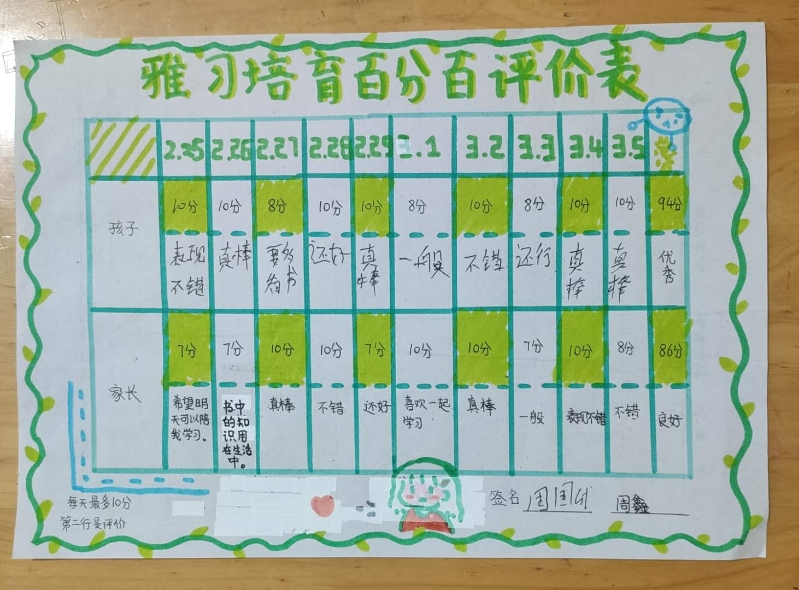 雅习培育百分百评价表
2.25 2.26 2.27 2.28 2.29 3.1 3.2 3.3 3.4 3.5
孩子 10分 10分 8分 10分 10分 8分 10分 8分 10分 10分 94分
表现不错 真棒 要多看书 还好 真棒 一般 不错 还行 真棒 真棒 优秀
家长 7分 7分 10分 10分 7分 10分 10分 7分 10分 8分 86分
希望明天可以陪我学习。 书中的知识用在生活中。 真棒 不错 还好 喜欢一起学习 真棒 一般 表现不错 不错 良好
每天最多10分
第二行是评价
签名 周鑫